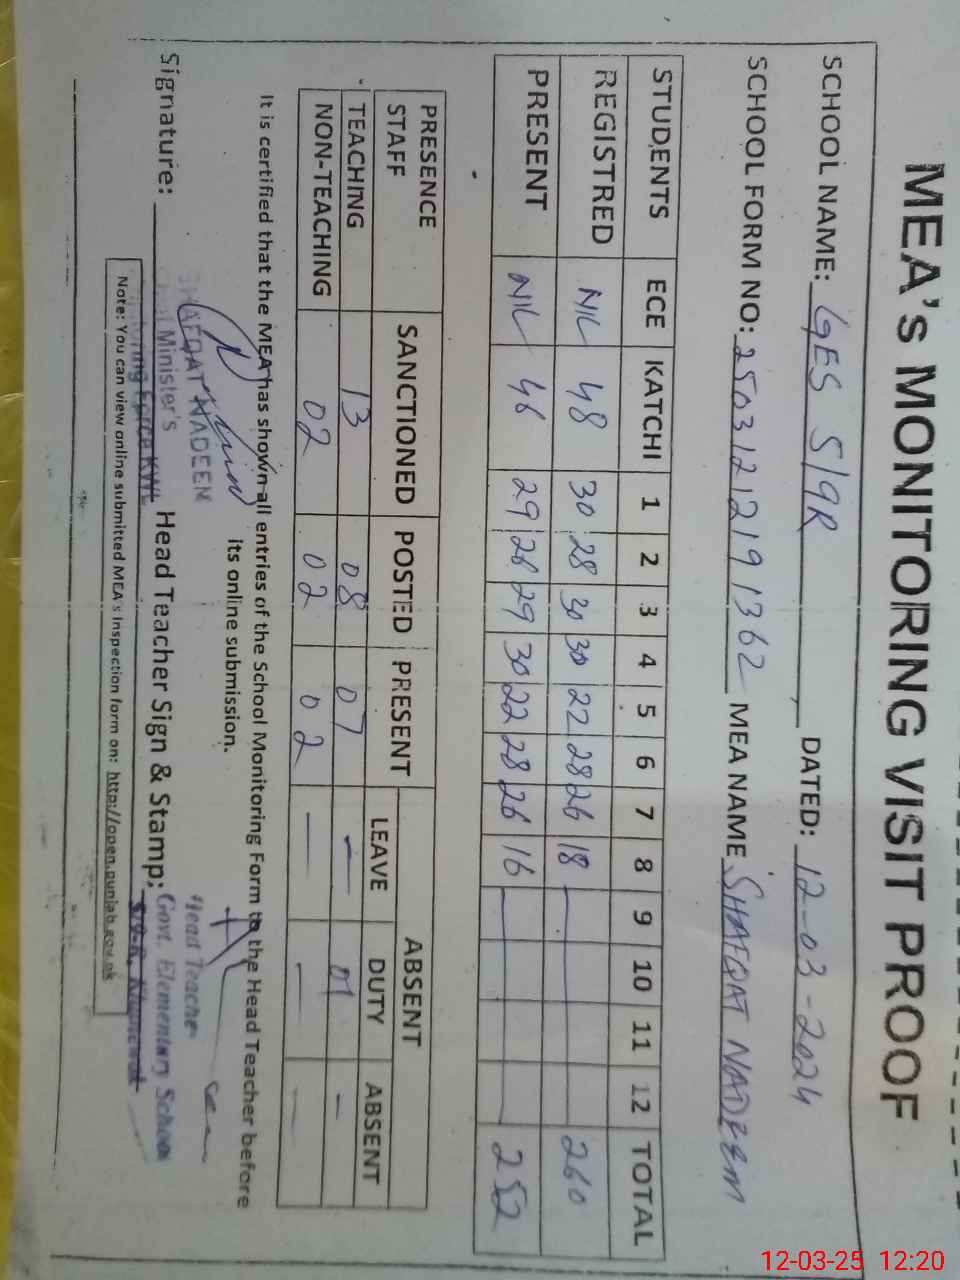 MEA's MONITORING VISIT PROOF
SCHOOL NAME: GES 5/9R DATED: 12-03-2024
SCHOOL FORM NO: 25031212191362 MEA NAME SHAFQAT NADEEM
STUDENTS ECE KATCHI 1 2 3 4 5 6 7 8 9 10 11 12 TOTAL
REGISTRED NIL 48 30 28 30 30 22 28 26 18 260
PRESENT NIL 46 29 26 29 30 22 28 26 16 252
PRESENCE STAFF SANCTIONED POSTED PRESENT ABSENT
LEAVE DUTY ABSENT
TEACHING 13 08 07 — 01 -
NON-TEACHING 02 02 02 — — —
It is certified that the MEA has shown all entries of the School Monitoring Form to the Head Teacher before
its online submission.
SHAFQAT NADEEM
Minister's
Force KWL
Signature: Head Teacher Sign & Stamp:
Head Teacher
Govt. Elementary School
5/9-R, Khanewal
Note: You can view online submitted MEA's Inspection form on: http://open.punjab.gov.pk
12-03-25 12:20